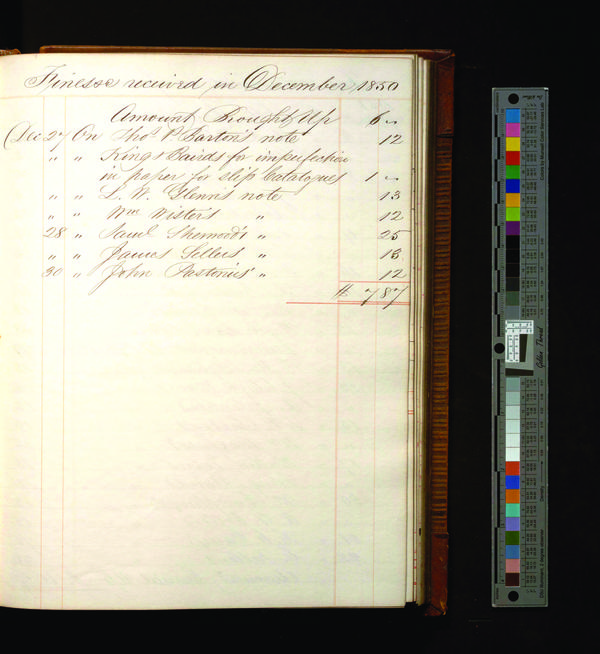 Finesse received in December 1850
Amount Brought Up 6 "
Dec 27 On Thos. P. Parton's note 12
" " King & Bairds for imperfection
in paper for slip Catalogues 1 "
" " L. W. Glenn's note 13
" " Wm Wister's " 12
28 " Saml Sherwood's " 25
" " James Sellers " 13
30 " John Pastorius' " 12
$ 7 87